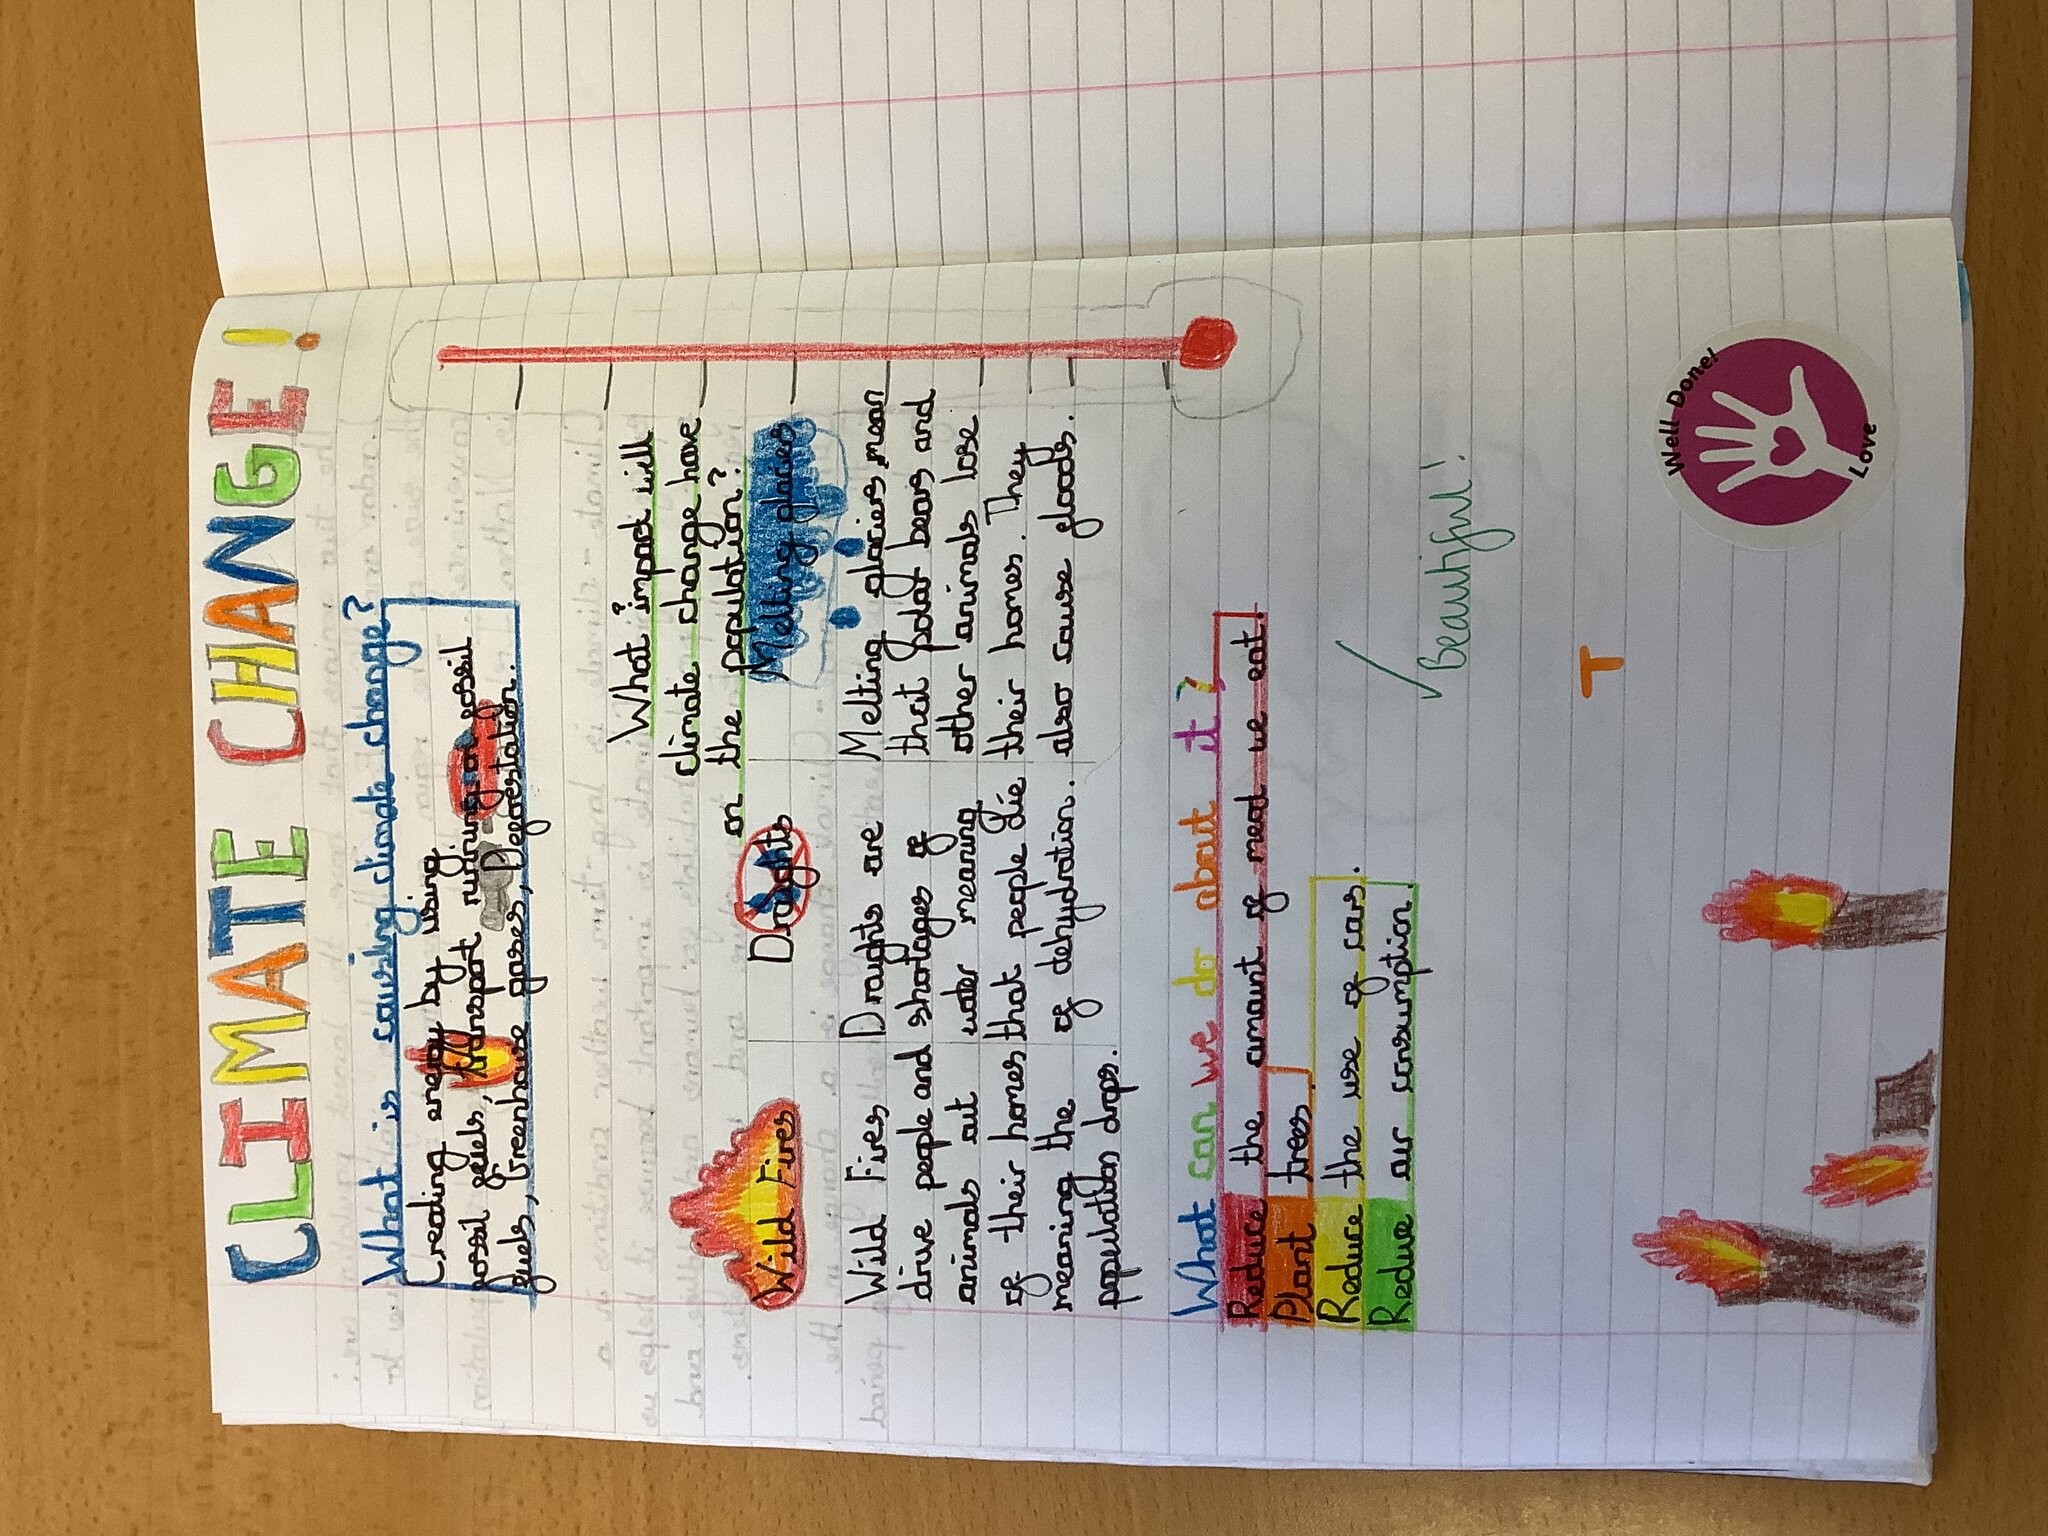 CLIMATE CHANGE!
What is causing climate change?
Creating energy by using
fossil fuels, transport running on fossil
fuels, Greenhouse gases, Deforestation.
What impact will
climate change have
on the population?
Wild Fires
Wild Fires
drive people and
animals out
of their homes
meaning the
population drops.
Droughts
Droughts are
shortages of
water meaning
that people die
of dehydration.
Melting glaciers
Melting glaciers mean
that polar bears and
other animals lose
their homes. They
also cause floods.
What can we do about it?
Reduce the amount of meat we eat.
Plant trees.
Reduce the use of cars.
Reduce our consumption.
✓ Beautiful!
T
Well Done!
Love